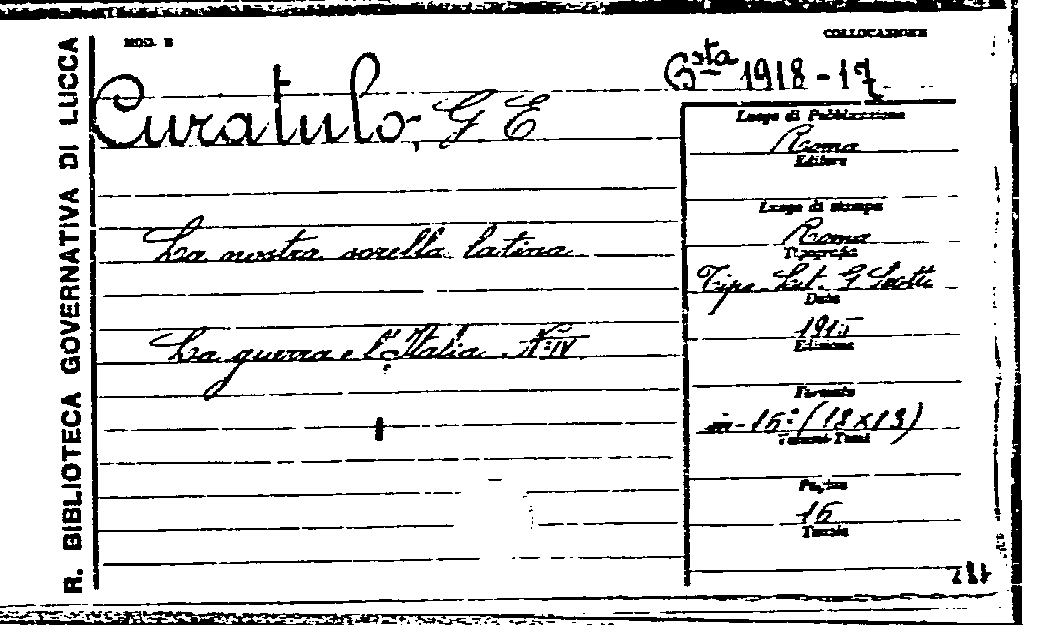 R. BIBLIOTECA GOVERNATIVA DI LUCCA
MOD. E
COLLOCAZIONE
Bsta 1918-17
Curatulo, G E
La nostra sorella latina
La guerra e l'Italia. N° IV
Luogo di Pubblicazione
Roma
Editore
Luogo di stampa
Roma
Tipografia
Tipo-Lit. G
Data
1915
Edizione
Formato
in-16° (18x13)
Volumi-Tomi
Pagine
16
Tavole